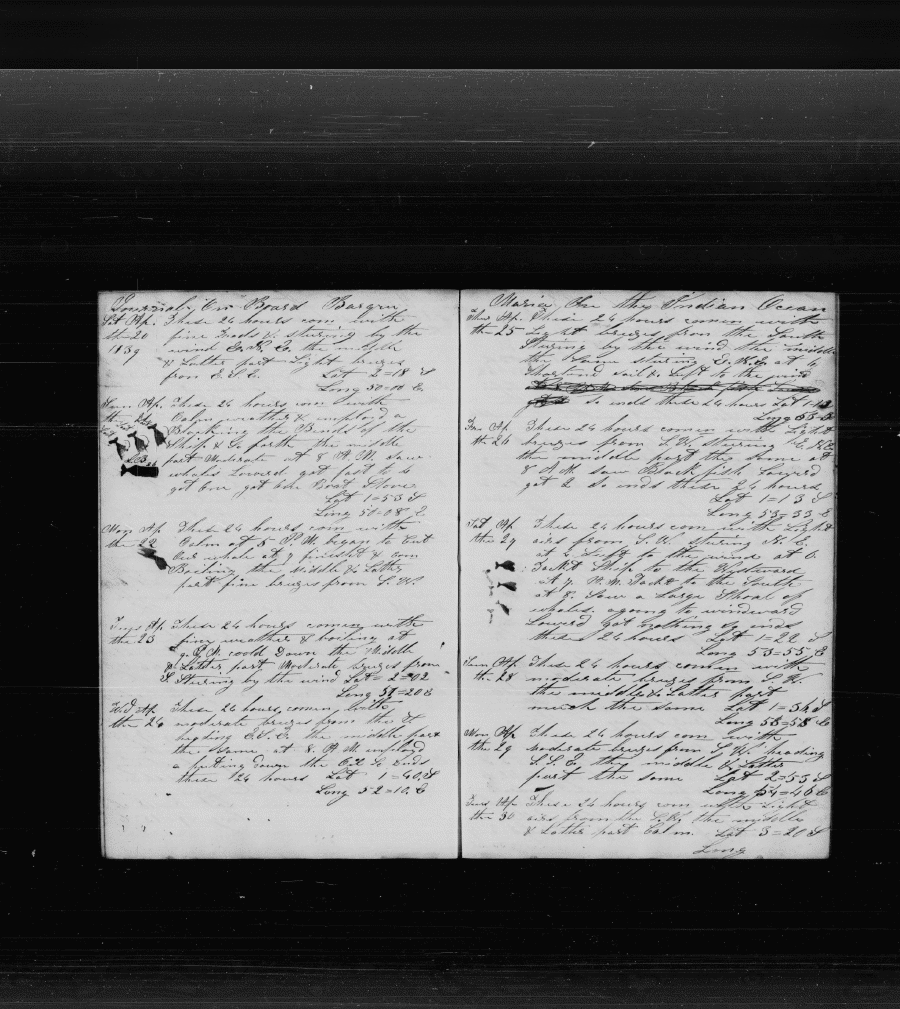 Journal, On Board Barqu
Sat Ap. These 24 hours com with
th 20 fine Trads & sturing by the
1859 wind the middle
& Latter part Light brezes
from E.S.E. Lat 2=18 S
Long 50=01 E
Ap. These 24 hours com with
the Calm weather & employd a
Breaking the Bonds of the
Ship & So forth the middle
part Moderate at 8 A M saw
whals Lowerd got fast to
got one got one Boat Stove
Lat 1=53 S
Long 50=08 E
Mon Ap These 24 hours com with
the 22 Calm at 5 P M began to Cut
our whale at 7 finisht & com
Boiling the Middle & Latter
part fine brezes from S. W.
Tues Ap These 24 hours comen with
the 23 fine weather & boiling at
9. P. M. coold Down the Middle
& Latter part Moderate brezes from
S Sturing by the wind Lat = 2=02
Long 51=20 E
Wed Ap These 24 hours comen with
the 24 moderate brezes from the
heading the middle part
the Same at 8. A M employd
a puting down the Oil So Ends
these 24 hours Lat 1=40. S
Long 52=10. E
Maria In the Indian Ocean
Thu Ap. These 24 hours comen with
th 25 Light brezes from the South
Sturing by the wind the middle
the Same sturing at 6
Shortend sail & Luft to the wind
So ends these 24 hours Lat
Long
Fri Ap These 24 hours comen with Light
th 26 brezes from S.W. sturing
the middle part the same at
8 A M saw Black fish Lowerd
got 2 So ends these 24 hours
Lat 1=13 S
Long 53=33 E
Sat Ap These 24 hours com with Light
the 27 airs from S. W. sturing N. E.
at 6 Luft to the wind at
Tackt Ship to the Westward
At 7. A. M. Tackt to the South
at 8. Saw a Large Shoal of
whales. agoing to windward
Lowerd got nothing So ends
these 24 hours Lat 1=22 S
Long 53=55 E
Sun Ap These 24 hours comen with
th 28 moderate brezes from S. W.
the middle & Latter part
much the same Lat 1=34 S
Long 53=58 E
Mon Ap These 24 hours com with
the 29 moderate brezes from S W. heading
S. S. E. they middle & Latter
part the same Lat 2=55 S
Long 54=46 E
Tues Ap These 24 hours com with Light
the 30 airs from the the middle
& Latter part Calm. Lat 3=20 S
Long